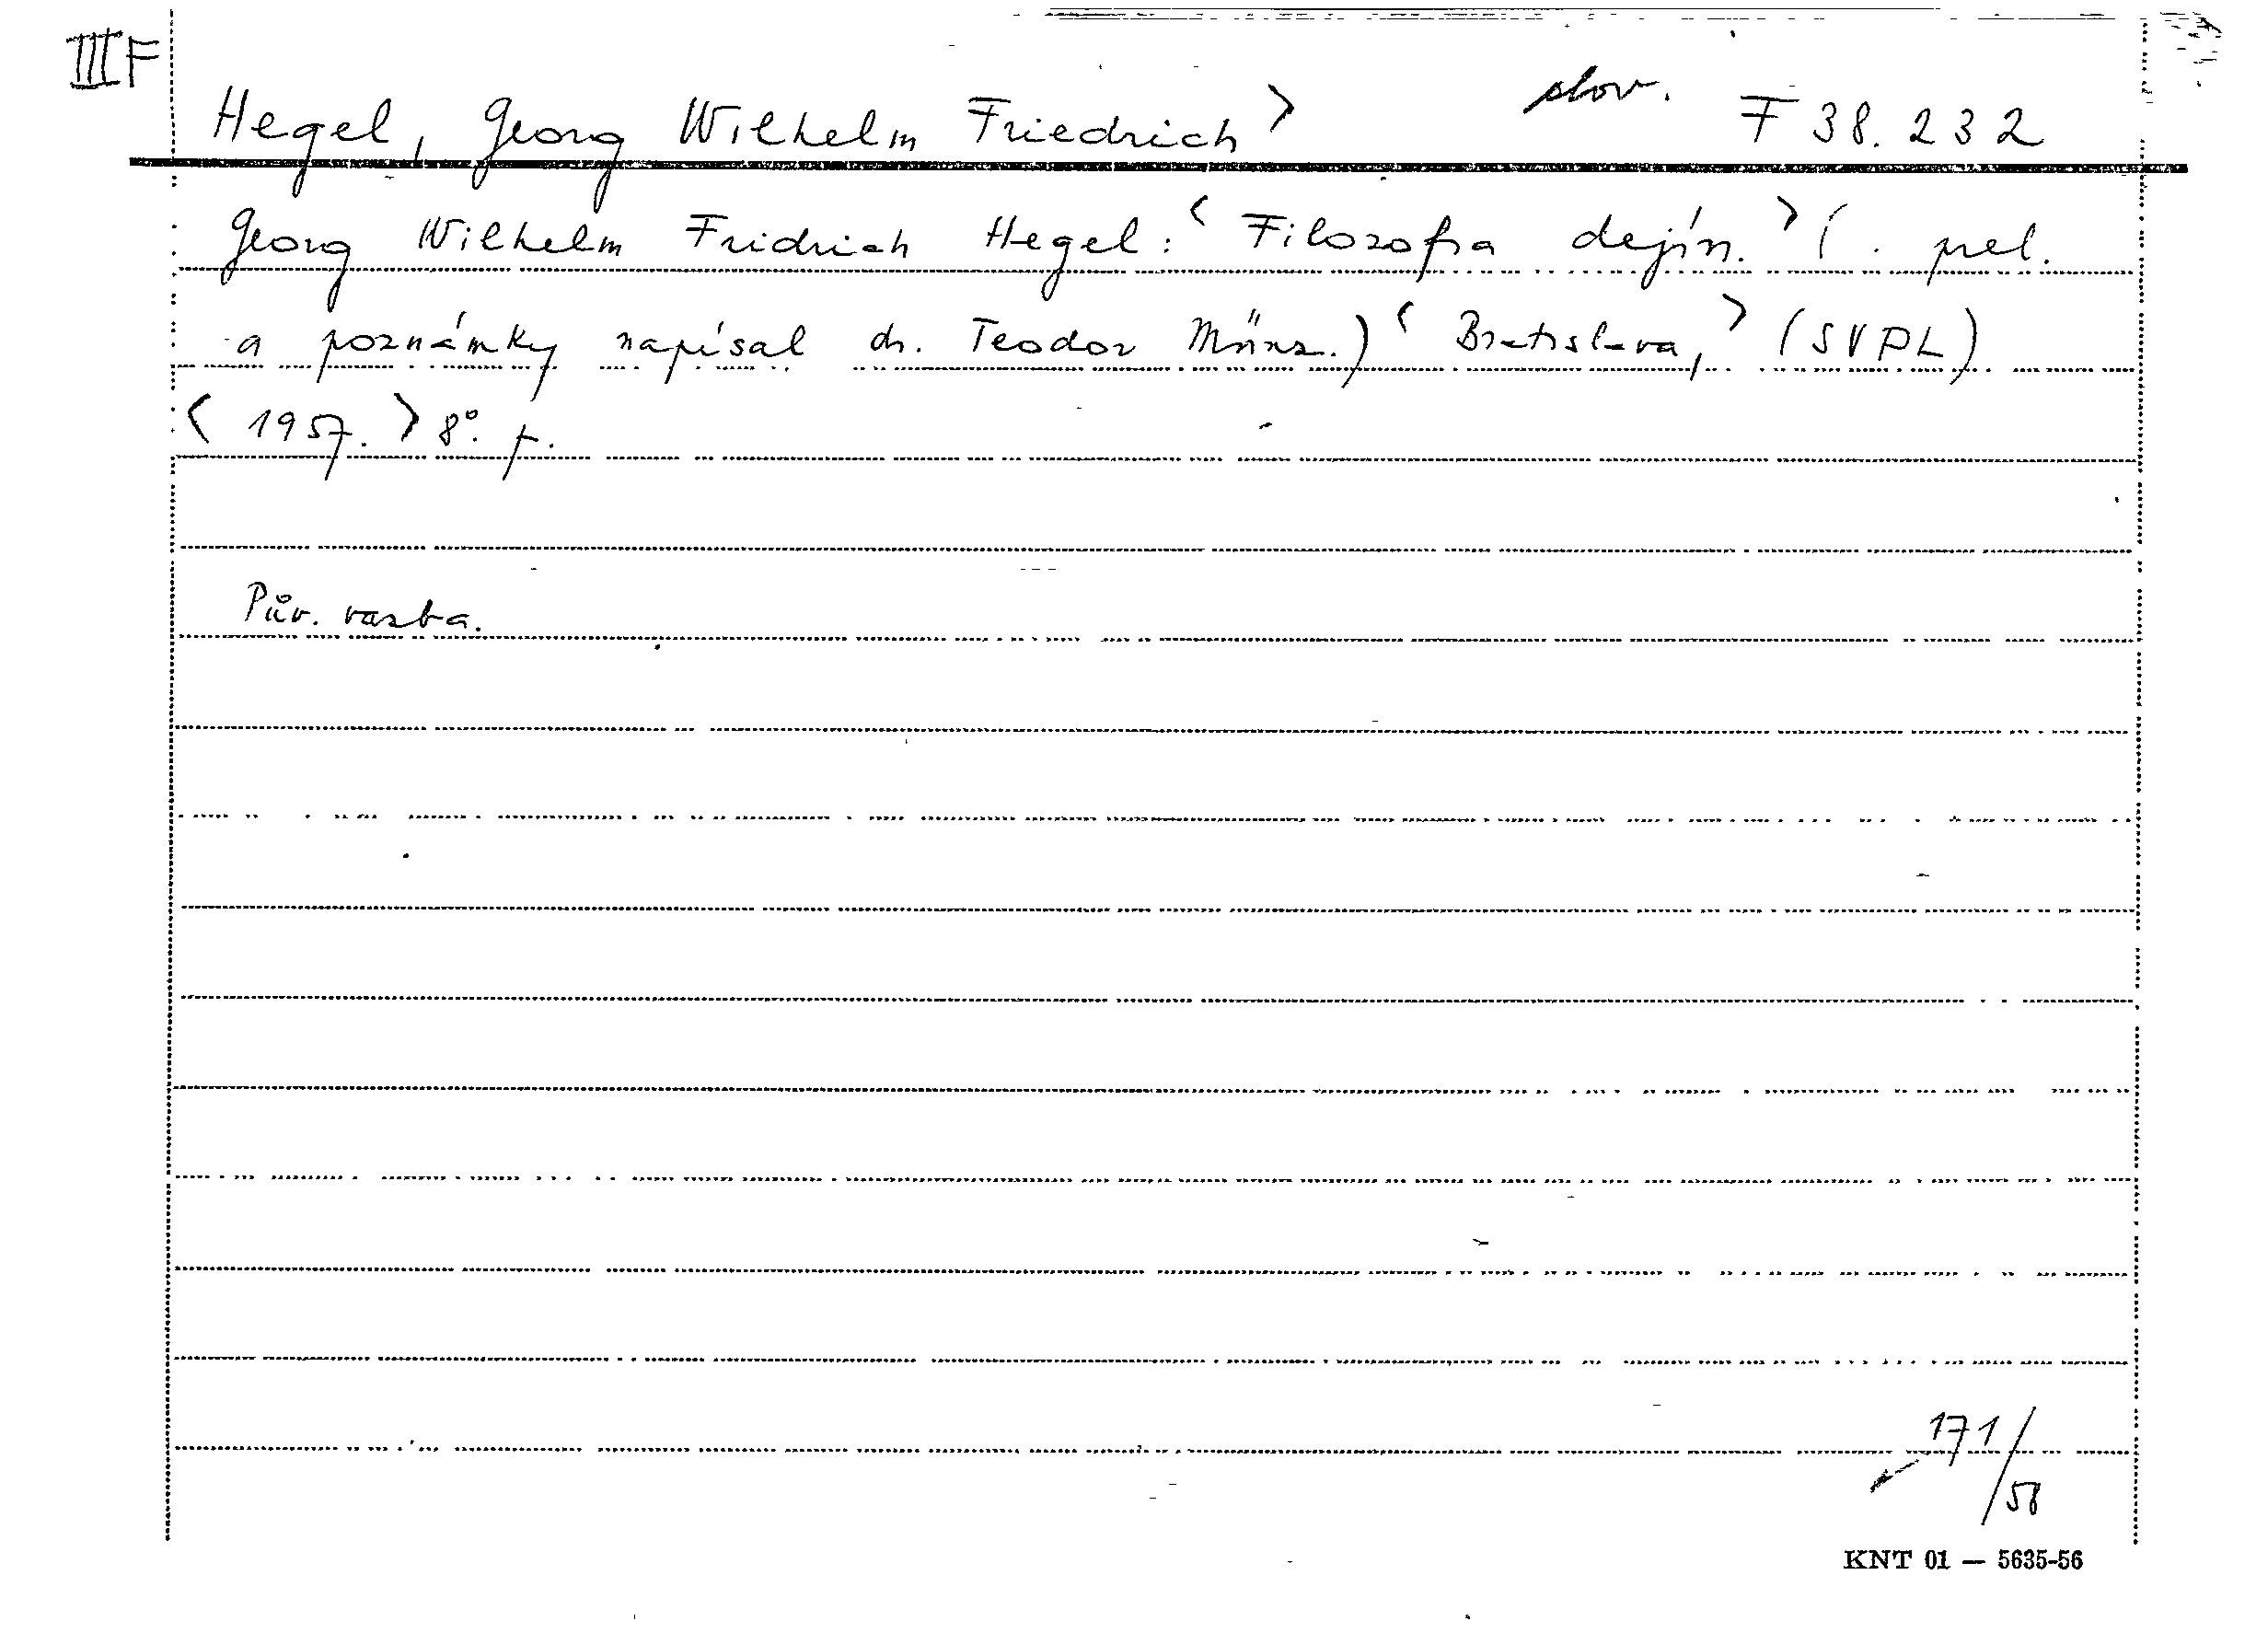 III F
Hegel, Georg Wilhelm Friedrich > slov. F 38.232
Georg Wilhelm Fridrich Hegel: < Filozofia dejín. > ( . prel.
a poznámky napísal dr. Teodor Münz.) < Bratislava, > (SVPL)
< 1957. > 8°. p.
Pův. vazba.
171/58
KNT 01 — 5635-56